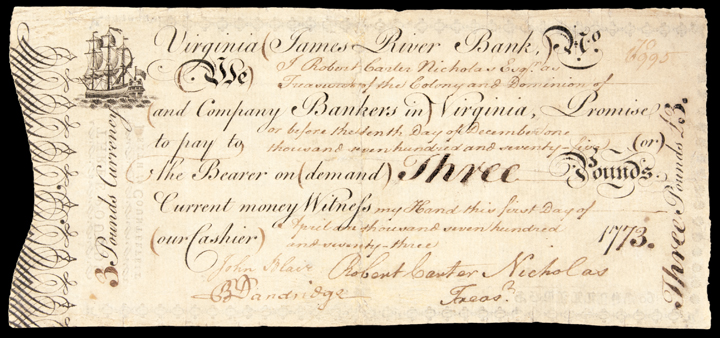 Virginia (James River Bank,) No
6995
(We) I Robert Carter Nicholas Esqr. as
Treasurer of the Colony and Dominion of
(and Company Bankers in) Virginia, Promise
to pay to or before the tenth Day of December one
thousand seven hundred and seventy-five (or)
the Bearer on (demand) Three Pounds.
Current money Witness my Hand this first Day of
(our Cashier) April one thousand seven hundred
and seventy-three 1773.
John Blair Robert Carter Nicholas
Dandridge Treasr.
3 Pounds Currency
Three Pounds £3.